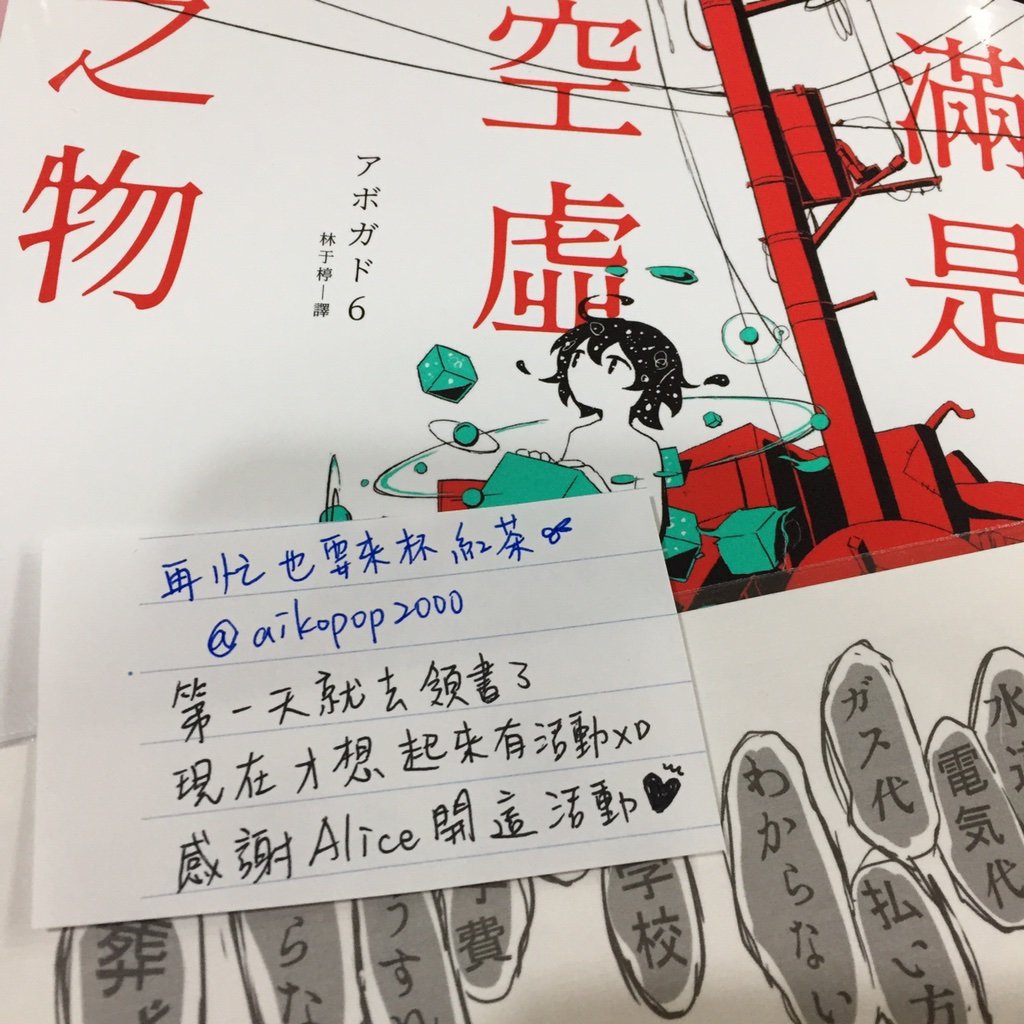 滿是
空虛
之物
アボガド6
林于楟—譯
再忙也要來杯紅茶
@aikopop2000
第一天就去領書了
現在才想起來有活動XD
感謝Alice開這活動
水道
電気代
ガス代
払い方
わからない
学校
学費
うすれ
らな
葬